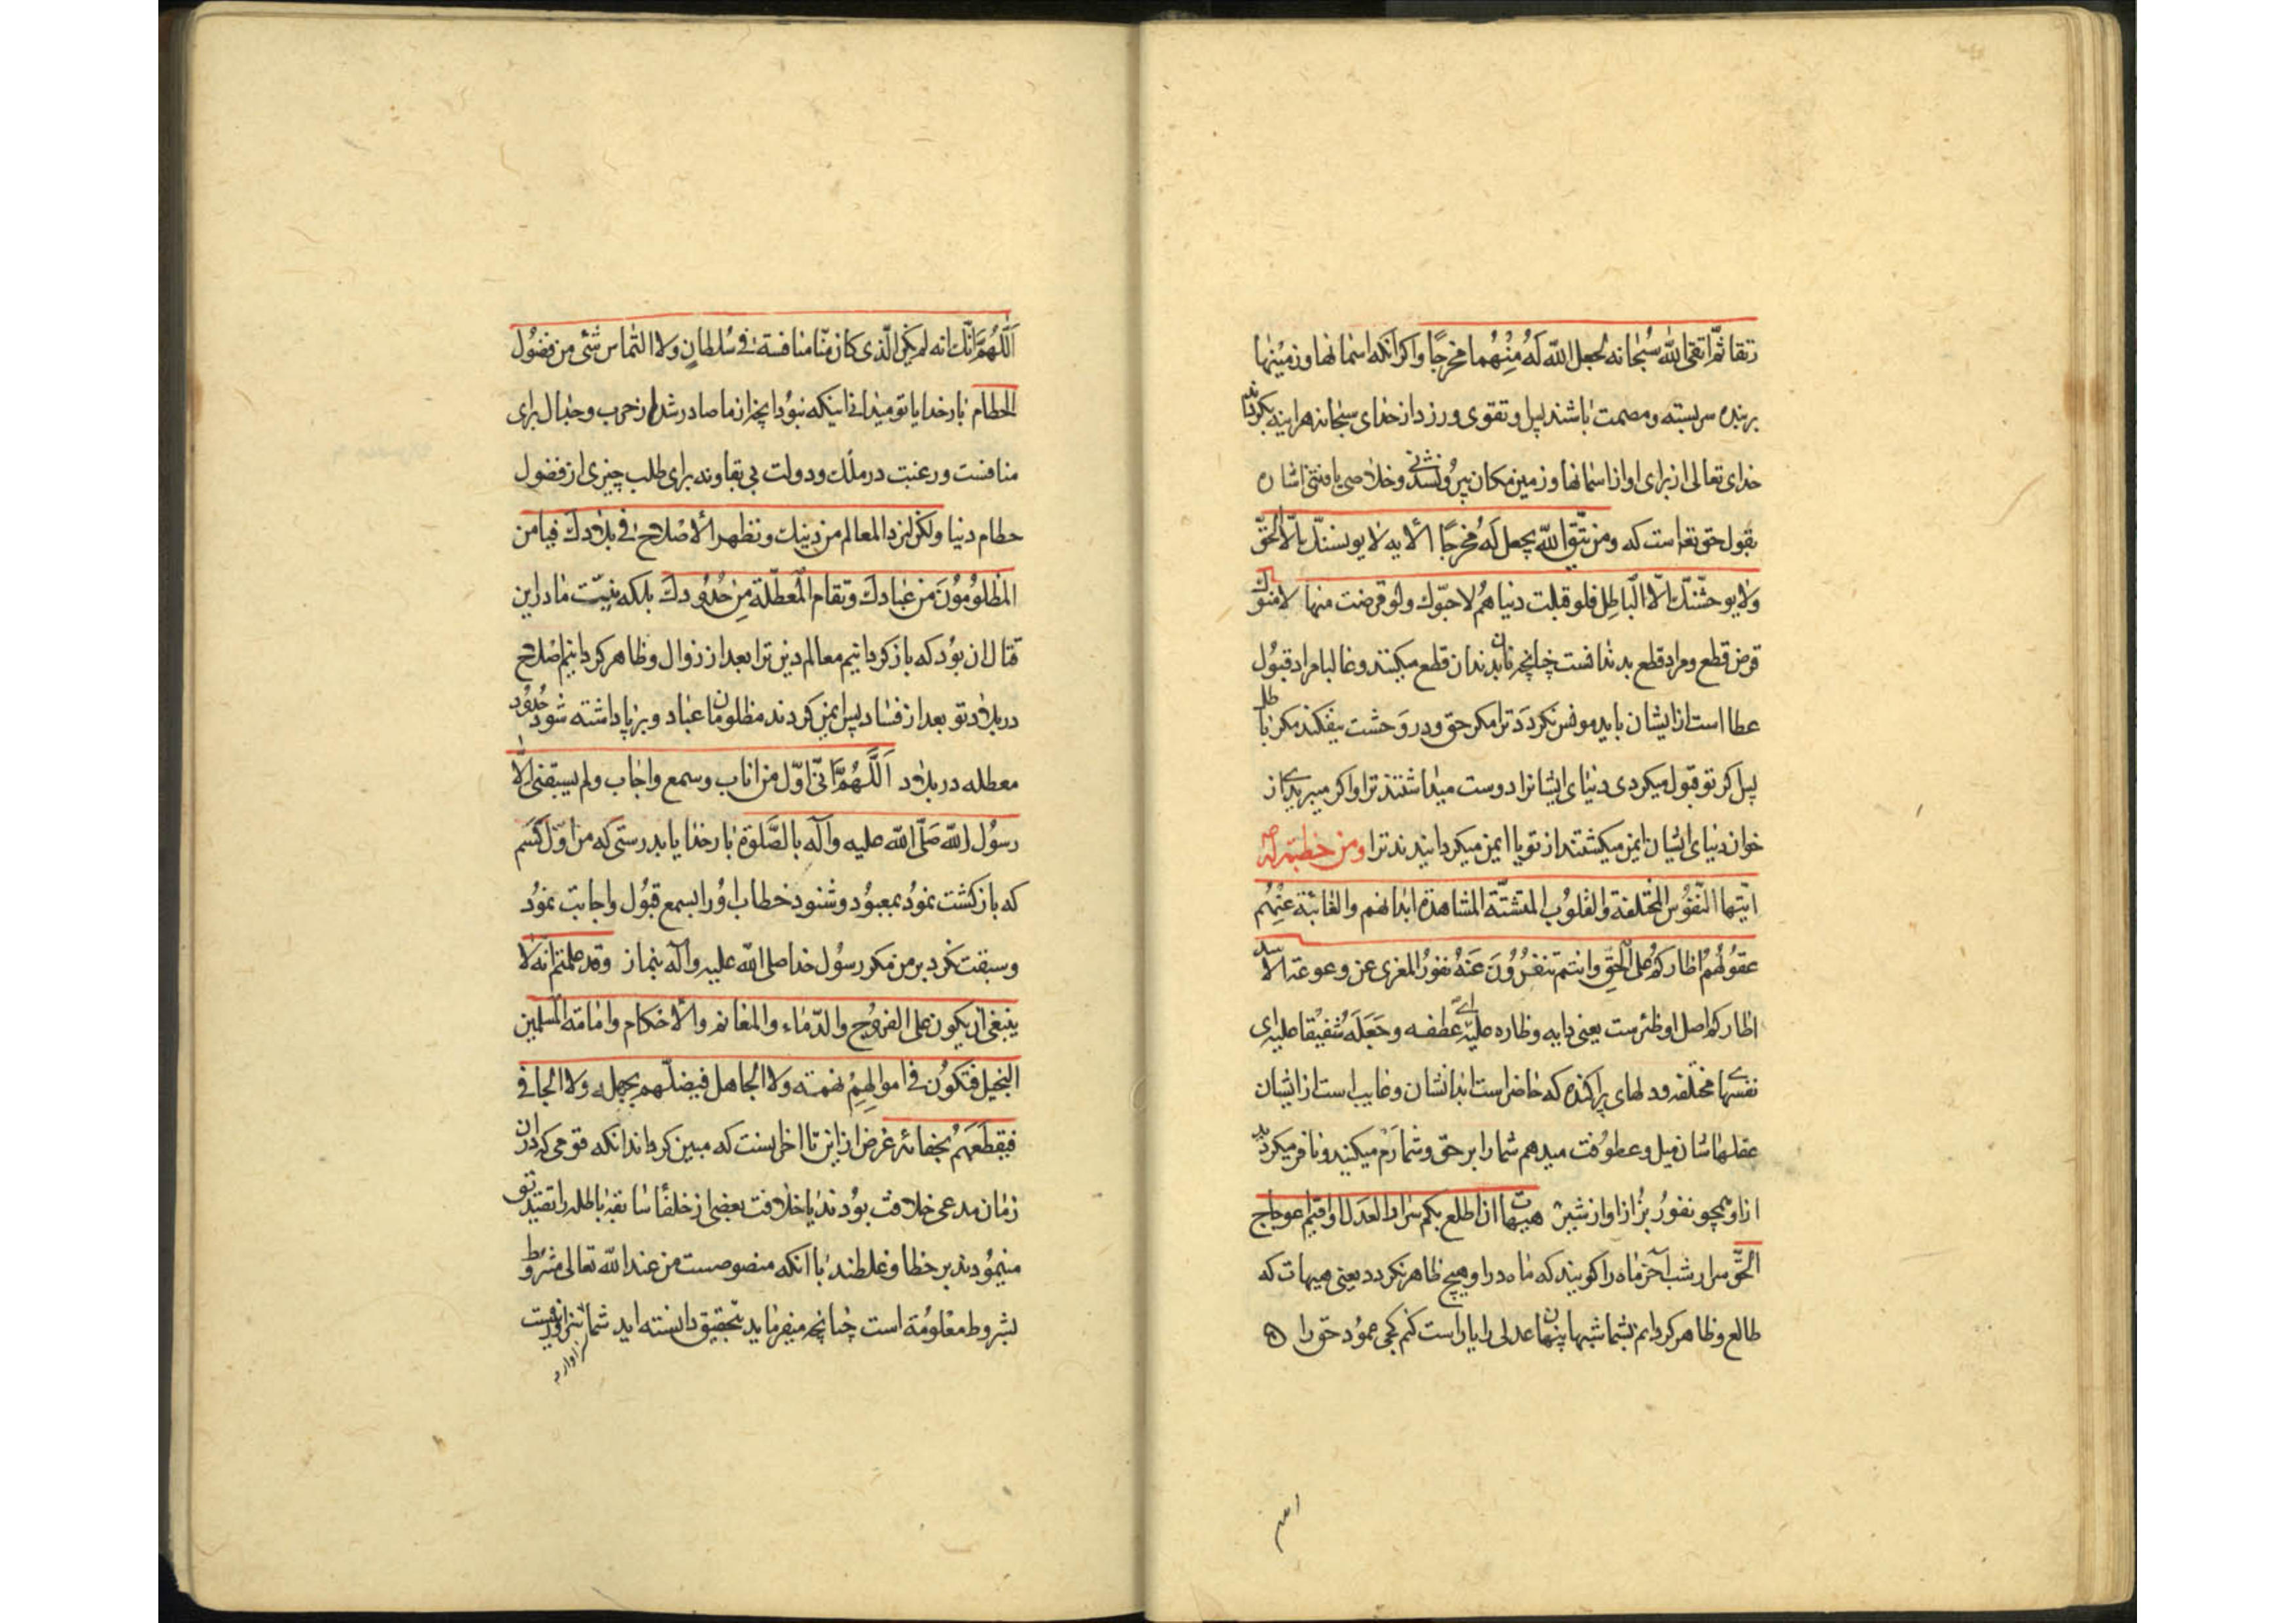 رتقا ثمّ اتقی اللّه سُبحانه لجعل اللّه لَهُ مِنْهُما مخرجًا و اکر آنکه اسمانها و زمینها
بر بنده سربسته و مصمت باشند پس او تقوی ورزد از خدای سبحانه هراینه بکرداند
خدای تعالی از برای او از اسمانها و زمین مکان بیرون شدنی و خلاصی یافتنی اشاره
بقول حق تعا است که و من یتّق اللّه یجعل له مخرجًا الایه لا یونسنّک الّا الحقّ
ولا یوحشنّک الّا الباطِل فلو قبلت دنیاهُم لاحبّوک ولو قرضت منها لامنوک
قرض قطع و مراد قطع بدندانست چنانچه نان بدندان قطع میکنند و غالبا مراد قبول
عطا است از ایشان باید مونس نکردد ترا مکر حق و در وحشت نیفکند مکر باطل
پس اکر تو قبول میکردی دنیای ایشانرا دوست میداشتند ترا و اکر میبریدی از
خوان دنیای ایشان ایمن میکشتند از تو یا ایمن میکردانیدند ترا و من خطبة له
ایّتها النّفوُس المختلفة والقلوُب المتشتّة المشاهدة ابدانهم والغائبة عنهُم
عقوُلهُم اظارکم علی الحقّ و انتم تنفروُن عَنهُ نفوُر المعزی عن وعوعة الاسد
اظارکم اصل او ظئرست یعنی دایه و ظاره علیه ای عطفه وجَعَلَه شفیقا علیه ای
نفسهای مختلفه و دلهای پراکنده که حاضر است ابدانشان و غایب است از ایشان
عقلهاشان میل و عطوفت میدهم شما را بر حق و شما رَم میکنید و نافر میکردید
از او همچو نفوُر بُز از اواز شیر هیهات ان اطلع بکم سرار العدل او اقیم اعوجاج
الحقّ سرار شب آخر ماه را کویند که ماه در او هیچ ظاهر نکردد یعنی هیهات که
طالع و ظاهر کردانم بشما شبها پنهان عدلی را یا راست کنم کجی عمود حق را
اللّهُمّ انّک تعلم انه لم یکن الّذی کان منّا منافسة فی سُلطانٍ ولا التماس شئ من فضُول
الحطام بار خدایا تو میدانی اینکه نبود انچه از ما صادر شد از حرب و جدال برای
منافست و رغبت در ملک و دولت بی بقا و نه برای طلب چیزی از فضول
حطام دنیا ولکن لنرد المعالم من دینک ونظهر الأصلاح فی بلادک فیامن
المظلوُموُن من عبادک وتقام المُعطّلة مِن حُدوُدک بلکه نیّت ما در این
قتال ان بوُد که باز کردانیم معالم دین ترا بعد از زوال و ظاهر کردانیم اصلاح
در بلاد تو بعد از فساد پس ایمن کردند مظلومان ما عباد و برپا داشته شود حُدوُد
معطله در بلاد اَللّهُمّ انّی اوّل من اناب وسمع واجاب ولم یسبقنی الّا
رسوُل اللّه صَلّی اللّه علیه وآله بالصَّلوة بار خدایا بدرستی که من اوّل کسَم
که باز کشت نموُد بمعبوُد و شنود خطاب اوُ را بسمع قبُول و اجابت نموُد
و سبقت نکرد بر من مکر رسوُل خدا صلی اللّه علیه وآله بنماز وقد علمتم انّه لا
ینبغی ان یکون علی الفروج والدّماء والمغانم والأحکام وامامة المسلمین
البخیل فتکوُن فی اموالِهِمْ نهمته ولا الجاهل فیضلّهم بجهله ولا الجافی
فیقطعَهُم بجفائه غرض از این تا اخر اینست که مبین کرداند انکه قومی که در ان
زمان مدعی خلافت بوُدند یا خلافت بعضی از خلفا سابقه باطله را تقویت
مینموُدند بر خطا و غلطند با انکه منصوصست من عند اللّه تعالی مشروُط
بشروط معلوُمة است چنانچه میفرماید بتحقیق دانسته اید شما
سزاوار